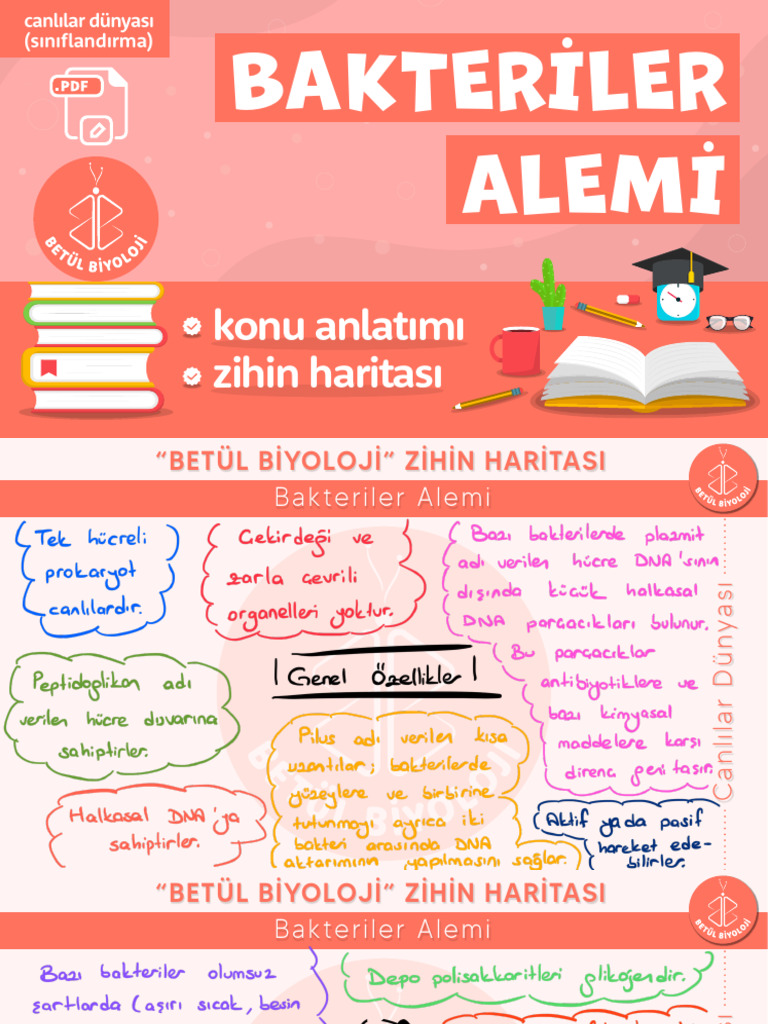 canlılar dünyası
(sınıflandırma)
.PDF
BETÜL BİYOLOJİ
BAKTERİLER
ALEMİ
konu anlatımı
zihin haritası
“BETÜL BİYOLOJİ“ ZİHİN HARİTASI
Bakteriler Alemi
BETÜL BİYOLOJİ
Tek hücreli
prokaryot
canlılardır.
Çekirdeği ve
zarla çevrili
organelleri yoktur.
Bazı bakterilerde plazmit
adı verilen hücre DNA'sının
dışında küçük halkasal
DNA parçacıkları bulunur.
Bu parçacıklar
antibiyotiklere ve
bazı kimyasal
maddelere karşı
direnç geni taşır.
Canlılar Dünyası
Genel Özellikler
Peptidoglikan adı
verilen hücre duvarına
sahiptirler.
Pilus adı verilen kısa
uzantılar; bakterilerde
yüzeylere ve birbirine
tutunmayı ayrıca iki
bakteri arasında DNA
aktarımının yapılmasını sağlar.
Halkasal DNA'ya
sahiptirler.
Aktif yada pasif
hareket ede-
bilirler.
BETÜL BİYOLOJİ
“BETÜL BİYOLOJİ“ ZİHİN HARİTASI
Bakteriler Alemi
BETÜL BİYOLOJİ
Bazı bakteriler olumsuz
şartlarda (aşırı sıcak, besin
Depo polisakkaritleri glikojendir.